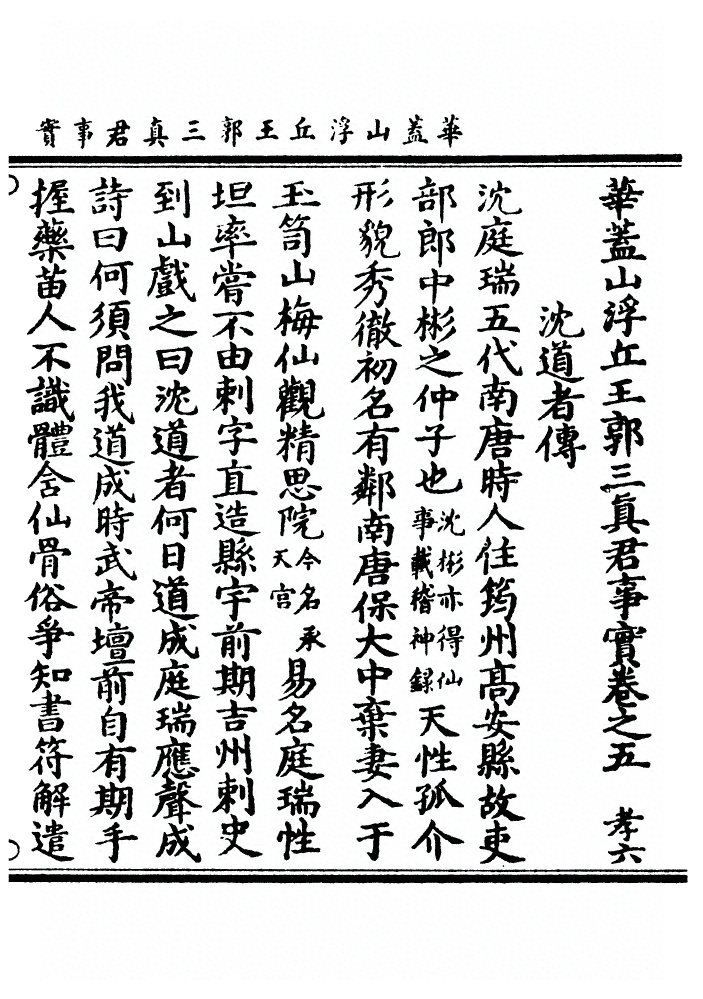 華蓋山浮丘王郭三真君事實
華蓋山浮丘王郭三真君事實卷之五　孝六
沈道者傳
沈庭瑞五代南唐時人住筠州高安縣故吏
部郎中彬之仲子也沈彬亦得仙事載稽神錄天性孤介
形貌秀徹初名有鄰南唐保大中棄妻入于
玉笥山梅仙觀精思院今名承天宫易名庭瑞性
坦率嘗不由刺字直造縣宇前期吉州刺史
到山戲之曰沈道者何日道成庭瑞應聲成
詩曰何須問我道成時武帝壇前自有期手
握藥苗人不識體含仙骨俗爭知書符解遣